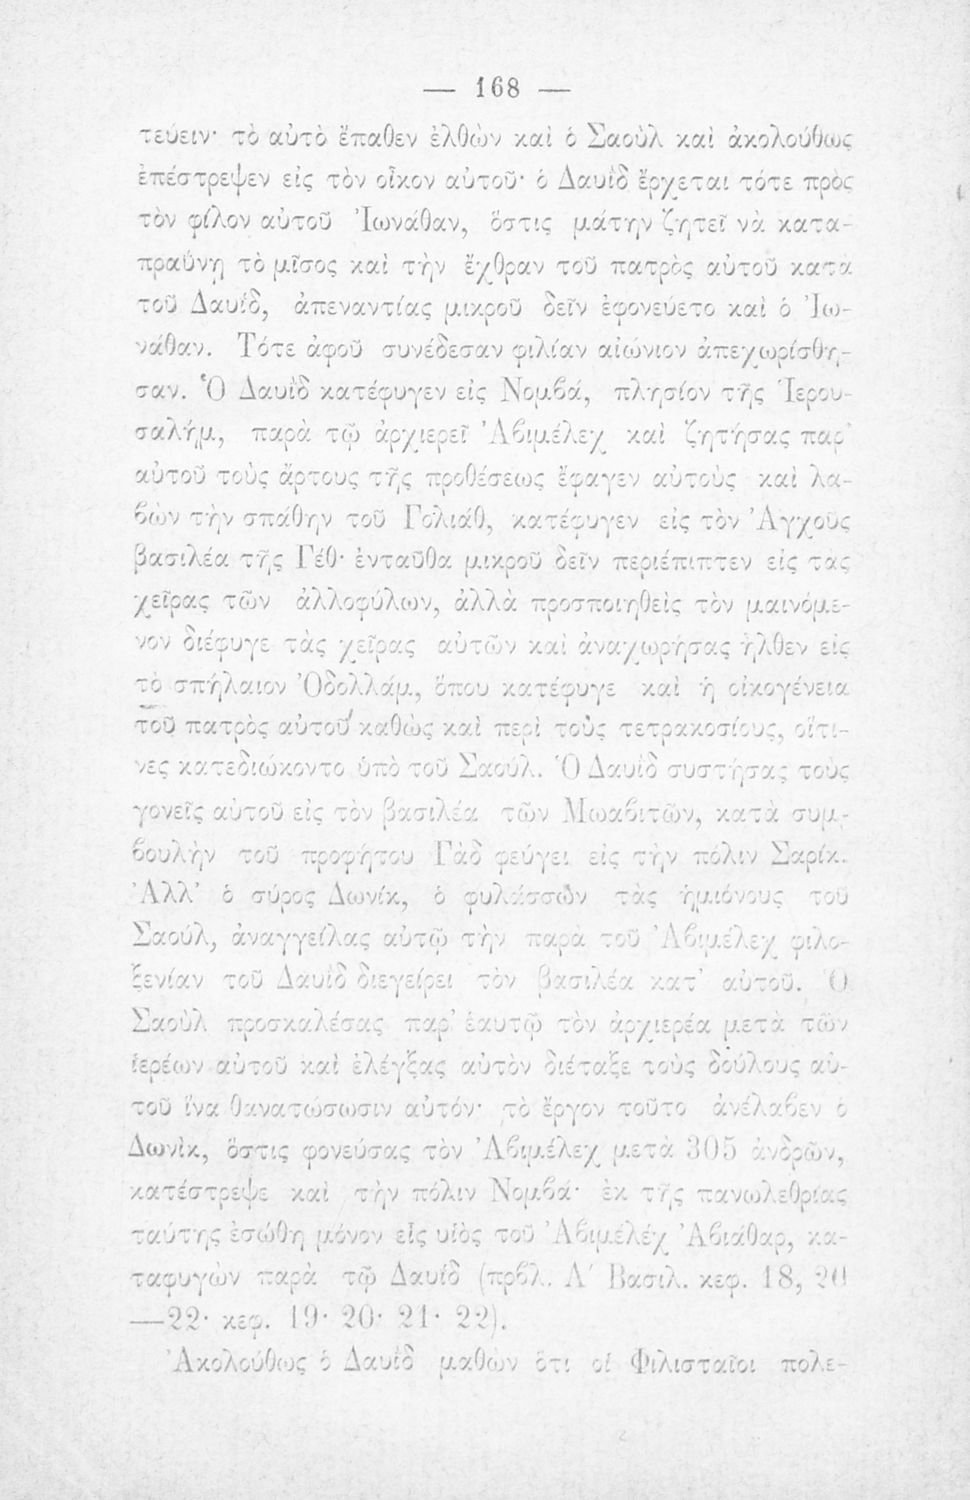 — 168 —
τεύειν· τὸ αὐτὸ ἔπαθεν ἐλθὼν καὶ ὁ Σαοὺλ καὶ ἀκολούθως
ἐπέστρεψεν εἰς τὸν οἶκον αὐτοῦ· ὁ Δαυῒδ ἔρχεται τότε πρὸς
τὸν φίλον αὐτοῦ Ἰωνάθαν, ὅστις μάτην ζητεῖ νὰ κατα-
πραΰνῃ τὸ μῖσος καὶ τὴν ἔχθραν τοῦ πατρὸς αὐτοῦ κατὰ
τοῦ Δαυΐδ, ἀπεναντίας μικροῦ δεῖν ἐφονεύετο καὶ ὁ Ἰω-
νάθαν. Τότε ἀφοῦ συνέδεσαν φιλίαν αἰώνιον ἀπεχωρίσθη-
σαν. Ὁ Δαυῒδ κατέφυγεν εἰς Νομβά, πλησίον τῆς Ἱερου-
σαλήμ, παρὰ τῷ ἀρχιερεῖ Ἀβιμέλεχ καὶ ζητήσας παρ'
αὐτοῦ τοὺς ἄρτους τῆς προθέσεως ἔφαγεν αὐτοὺς καὶ λα-
βὼν τὴν σπάθην τοῦ Γολιάθ, κατέφυγεν εἰς τὸν Ἀγχοῦς
βασιλέα τῆς Γέθ· ἐνταῦθα μικροῦ δεῖν περιέπιπτεν εἰς τας
χεῖρας τῶν ἀλλοφύλων, ἀλλὰ προσποιηθεὶς τὸν μαινόμε-
νον διέφυγε τὰς χεῖρας αὐτῶν καὶ ἀναχωρήσας ἦλθεν εἰς
τὸ σπήλαιον Ὀδολλάμ, ὅπου κατέφυγε καὶ ἡ οἰκογένεια
τοῦ πατρὸς αὐτοῦ καθὼς καὶ περὶ τοὺς τετρακοσίους, οἵτι-
νες κατεδιώκοντο ὑπὸ τοῦ Σαούλ. Ὁ Δαυῒδ συστήσας τοὺς
γονεῖς αὐτοῦ εἰς τὸν βασιλέα τῶν Μωαβιτῶν, κατὰ συμ-
βουλὴν τοῦ προφήτου Γὰδ φεύγει εἰς τὴν πόλιν Σαρίκ.
Ἀλλ' ὁ σύρος Δωνίκ, ὁ φυλάσσων τὰς ἡμιόνους τοῦ
Σαούλ, ἀναγγείλας αὐτῷ τὴν παρὰ τοῦ Ἀβιμέλεχ φιλο-
ξενίαν τοῦ Δαυῒδ διεγείρει τὸν βασιλέα κατ' αὐτοῦ. Ὁ
Σαοὺλ προσκαλέσας παρ' ἑαυτῷ τὸν ἀρχιερέα μετὰ τῶν
ἱερέων αὐτοῦ καὶ ἐλέγξας αὐτὸν διέταξε τοὺς δούλους αὐ-
τοῦ ἵνα θανατώσωσιν αὐτόν· τὸ ἔργον τοῦτο ἀνέλαβεν ὁ
Δωνὶκ, ὅστις φονεύσας τὸν Ἀβιμέλεχ μετὰ 305 ἀνδρῶν,
κατέστρεψε καὶ τὴν πόλιν Νομβά· ἐκ τῆς πανωλεθρίας
ταύτης ἐσώθη μόνον εἷς υἱὸς τοῦ Ἀβιμέλέχ Ἀβιάθαρ, κα-
ταφυγὼν παρὰ τῷ Δαυΐδ (πρβλ. Α' Βασιλ. κεφ. 18, 20
—22· κεφ. 19· 20· 21· 22).
Ἀκολούθως ὁ Δαυῒδ μαθὼν ὅτι οἱ Φιλισταῖοι πολε-